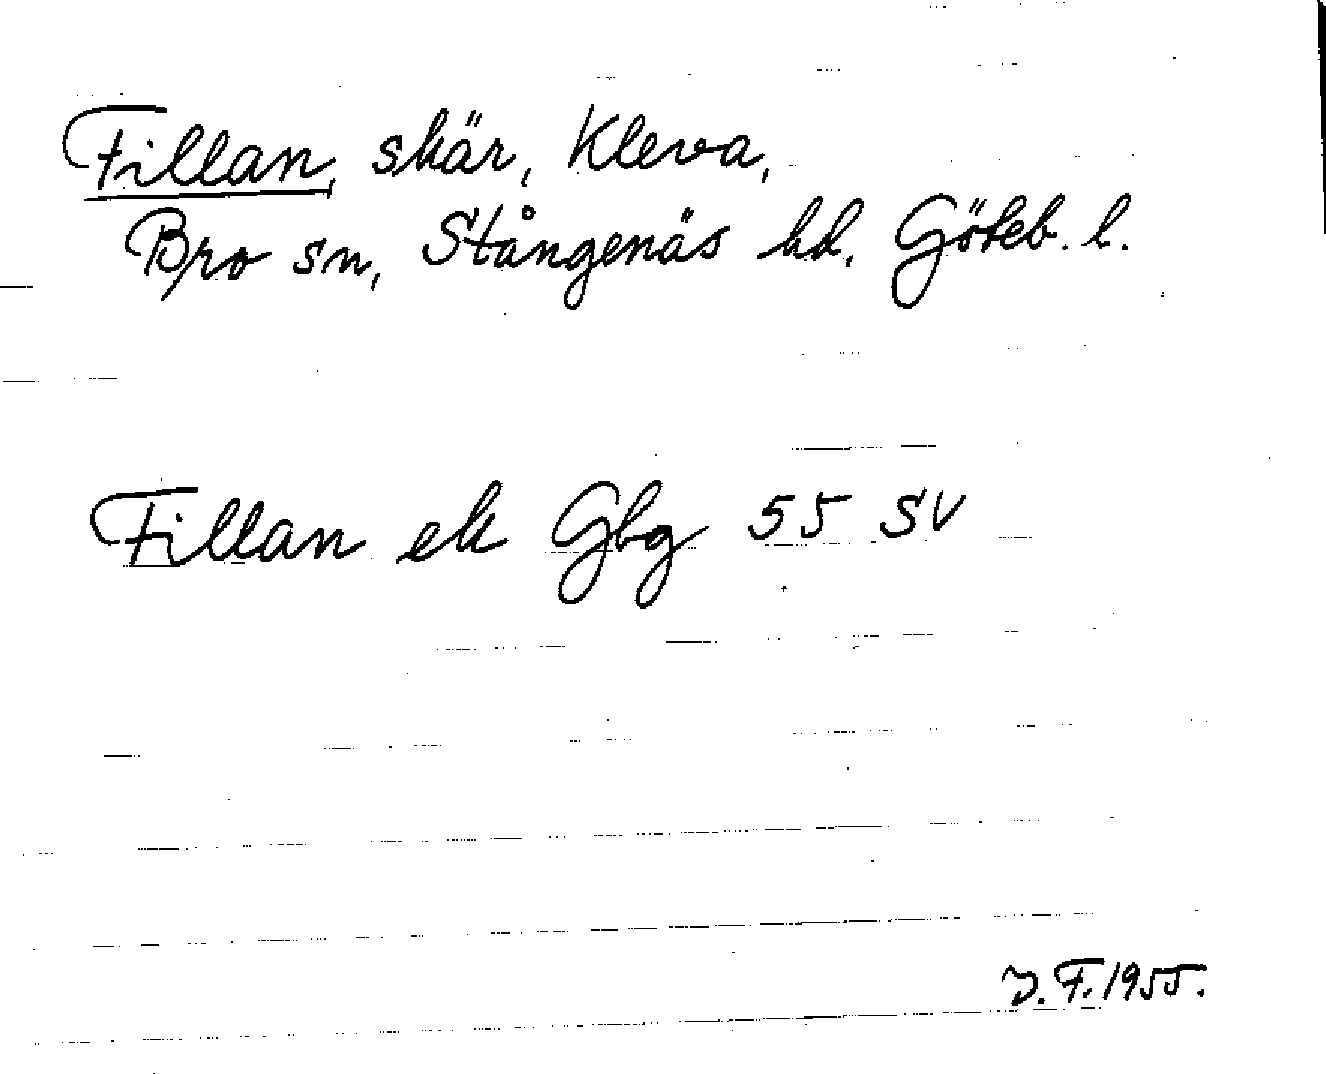 Fillan, skär, Kleva,
Bro sn, Stångenäs hd, Göteb. l.
Fillan ek Gbg 55 SV
J. F. 1955.